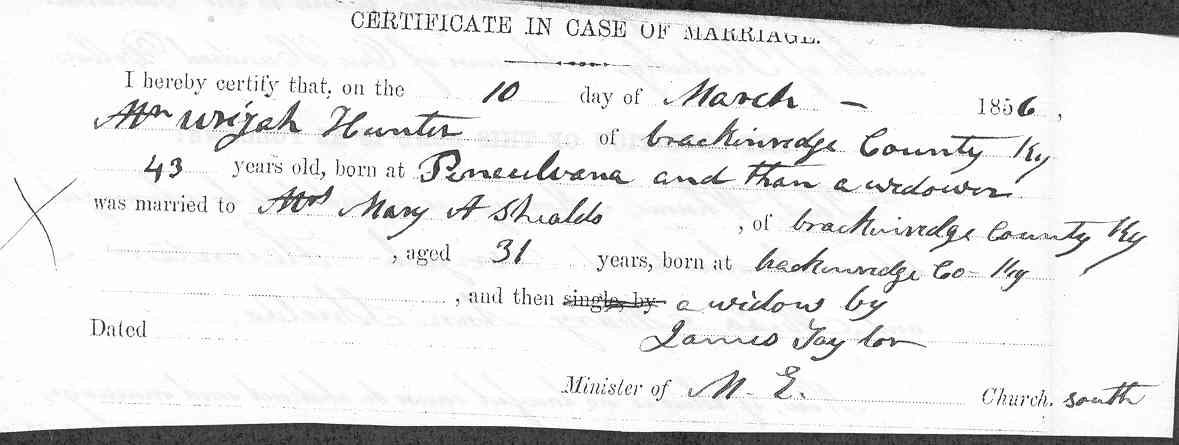 CERTIFICATE IN CASE OF MARRIAGE.
I hereby certify that, on the 10 day of March - 1856,
Mr Urijah Hunter of brackinridge County Ky
43 years old, born at Penculvana and than a widower
was married to Mrs Mary A Shealds, of brackinridge County Ky
, aged 31 years, born at brackinridge Co- Ky
, and then single, by a widow by
Dated James Taylor
Minister of M. E. Church. south